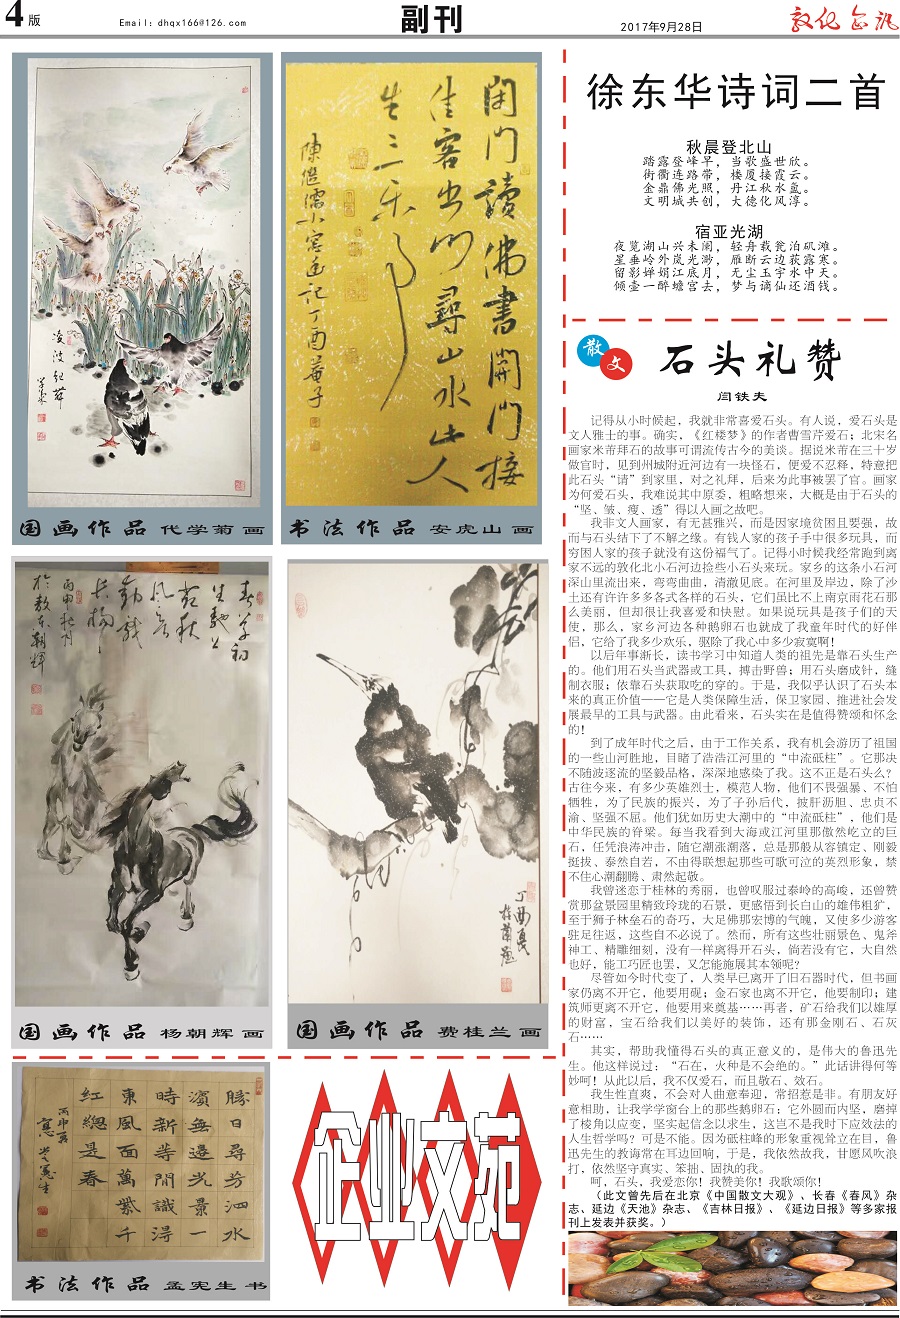 4版
Email: dhqx166@126.com
副刊
2017年9月28日
敦化企讯
凌波起舞
国画作品 代学菊 画
闭门读佛书开门接
佳客出门寻山水此人
生三乐
陳繼儒小窗幽記丁酉
书法作品 安虎山 画
国画作品 杨朝辉 画
丁酉夏
桂蘭
国画作品 费桂兰 画
勝日尋芳泗水
濱無邊光景一
時新等閒識得
東風面萬紫千
紅總是春
丙申
书法作品 孟宪生 书
企业文苑
徐东华诗词二首
秋晨登北山
踏露登峰早，当歌盛世欣。
街衢连路带，楼厦接霞云。
金鼎佛光照，丹江秋水氲。
文明城共创，大德化风淳。
宿亚光湖
夜览湖山兴未阑，轻舟载瓮泊矶滩。
星垂岭外岚光渺，雁断云边荻露寒。
留影婵娟江底月，无尘玉宇水中天。
倾壶一醉蟾宫去，梦与谪仙还酒钱。
散文
石头礼赞
闫铁夫
记得从小时候起，我就非常喜爱石头。有人说，爱石头是
文人雅士的事。确实，《红楼梦》的作者曹雪芹爱石；北宋名
画家米芾拜石的故事可谓流传古今的美谈。据说米芾在三十岁
做官时，见到州城附近河边有一块怪石，便爱不忍释，特意把
此石头“请”到家里，对之礼拜，后来为此事被罢了官。画家
为何爱石头，我难说其中原委，粗略想来，大概是由于石头的
“坚、皱、瘦、透”得以人画之故吧。
我非文人画家，有无甚雅兴，而是因家境贫困且要强，故
而与石头结下了不解之缘。有钱人家的孩子手中很多玩具，而
穷困人家的孩子就没有这份福气了。记得小时候我经常跑到离
家不远的敦化北小石河边捡些小石头来玩。家乡的这条小石河
深山里流出来，弯弯曲曲，清澈见底。在河里及岸边，除了沙
土还有许许多多各式各样的石头，它们虽比不上南京雨花石那
么美丽，但却很让我喜爱和快慰。如果说玩具是孩子们的天
使，那么，家乡河边各种鹅卵石也就成了我童年时代的好伴
侣，它给了我多少欢乐，驱除了我心中多少寂寞啊！
以后年事渐长，读书学习中知道人类的祖先是靠石头生产
的。他们用石头当武器或工具，搏击野兽；用石头磨成针，缝
制衣服；依靠石头获取吃的穿的。于是，我似乎认识了石头本
来的真正价值——它是人类保障生活，保卫家园、推进社会发
展最早的工具与武器。由此看来，石头实在是值得赞颂和怀念
的！
到了成年时代之后，由于工作关系，我有机会游历了祖国
的一些山河胜地，目睹了浩浩江河里的“中流砥柱”。它那决
不随波逐流的坚毅品格，深深地感染了我。这不正是石头么？
古往今来，有多少英雄烈士，模范人物，他们不畏强暴、不怕
牺牲，为了民族的振兴，为了子孙后代，披肝沥胆、忠贞不
渝、坚强不屈。他们犹如历史大潮中的“中流砥柱”，他们是
中华民族的脊梁。每当我看到大海或江河里那傲然屹立的巨
石，任凭浪涛冲击，随它潮涨潮落，总是那般从容镇定、刚毅
挺拔、泰然自若，不由得联想起那些可歌可泣的英烈形象，禁
不住心潮翻腾、肃然起敬。
我曾迷恋于桂林的秀丽，也曾叹服过泰岭的高峻，还曾赞
赏那盆景园里精致玲珑的石景，更感悟到长白山的雄伟粗犷，
至于狮子林垒石的奇巧，大足佛那宏博的气魄，又使多少游客
驻足往返，这些自不必说了。然而，所有这些壮丽景色、鬼斧
神工、精雕细刻，没有一样离得开石头，倘若没有它，大自然
也好，能工巧匠也罢，又怎能施展其本领呢？
尽管如今时代变了，人类早已离开了旧石器时代，但书画
家仍离不开它，他要用砚；金石家也离不开它，他要制印；建
筑师更离不开它，他要用来奠基……再者，矿石给我们以雄厚
的财富，宝石给我们以美好的装饰，还有那金刚石、石灰
石……
其实，帮助我懂得石头的真正意义的，是伟大的鲁迅先
生。他这样说过：“石在，火种是不会绝的。”此话讲得何等
妙呵！从此以后，我不仅爱石，而且敬石、效石。
我生性直爽，不会对人曲意奉迎，常招惹是非。有朋友好
意相助，让我学学窗台上的那些鹅卵石；它外圆而内坚，磨掉
了棱角以应变，坚实起信念以求生，这岂不是我时下应效法的
人生哲学吗？可是不能。因为砥柱峰的形象重视耸立在目，鲁
迅先生的教诲常在耳边回响，于是，我依然故我，甘愿风吹浪
打，依然坚守真实、笨拙、固执的我。
呵，石头，我爱恋你！我赞美你！我歌颂你！
（此文曾先后在北京《中国散文大观》、长春《春风》杂
志、延边《天池》杂志、《吉林日报》、《延边日报》等多家报
刊上发表并获奖。）